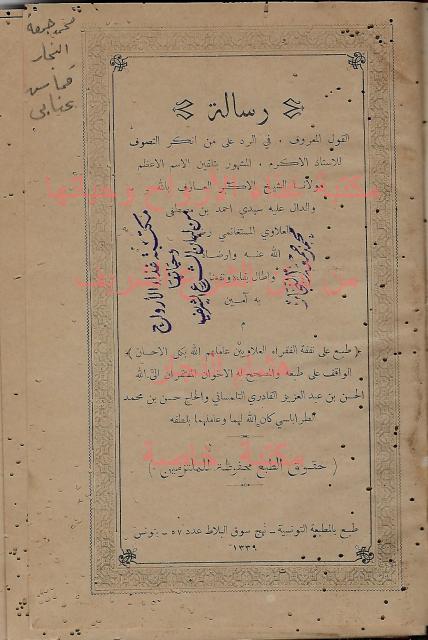 محمد جمعة
النجار
قماس
عنابي
رسالة
القول المعروف ، في الرد على من انكر التصوف
للاستاذ الاكرم ، المشهور بتلقين الاسم الاعظم
مولانا الشيخ الاكبر العارف بالله
والدال عليه سيدي احمد بن مصطفى
العلاوي المستغانمي
الله عنه وارضاه
واطال بقاءه
به آمين
م
مكتبة غذاء الأرواح وحياتها
من بيان الشرع الشريف
محمد جمعة النجار
﴿ طبع على نفقة الفقراء العلاويين عاملهم الله بكل الاحسان ﴾
الواقف على طبعه والمصحح له الاخوان المفتقران الى الله
الحسن بن عبد العزيز القادري التلمساني والحاج حسن بن محمد
الطرابلسي كان الله لهما وعاملهما بلطفه
( حقوق الطبع محفوظة للملتزمين )
طبع بالمطبعة التونسية - نهج سوق البلاط عدد ٥٧ - بتونس
١٣٣٩
مكتبة غذاء الأرواح وحياتها
من بيان الشرع الشريف
هشام النجار
مكتبة خاصة